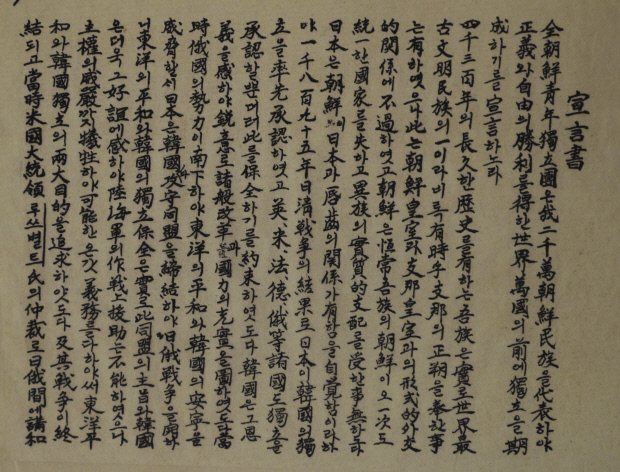 宣言書
全朝鮮青年獨立團은我二千萬朝鮮民族을代表하야
正義와自由의勝利를得한世界萬國의前에獨立을期
成하기를宣言하노라
四千三百年의長久한歷史를有하는吾族은實로世界最
古文明民族의一이라비록有時乎支那의正朔을奉한事
는有하엿으나此는朝鮮皇室과支那皇室과의形式的外交
的關係에不過하엿고朝鮮은恒常吾族의朝鮮이오一次도
統一한國家를失하고異族의實質的支配를受한事無하도다
日本은朝鮮이日本과唇齒의關係가有함을自覺함이라하
야一千八百九十五年日清戰爭의結果로日本이韓國의獨
立을率先承認하엿고英、米、法、德、俄等諸國도獨立을
承認할뿐더러此를保全하기를約束하엿도다韓國은그恩
義을感하야銳意로諸般改革과國力의充實을圖하엿도다當
時俄國의勢力이南下하야東洋의平和와韓國의安寧을
威脅할새日本은韓國과攻守同盟을締結하야日俄戰爭을開하
니東洋의平和와韓國의獨立保全은實로此同盟의主旨와韓國
은더욱그好誼에感하야陸海軍의作戰上援助는不能하엿으나
主權의威嚴까지犧牲하야可能한온갓義務를다하야써東洋平
和와韓國獨立의兩大目的을追求하얏도다及其戰爭이終
結되고當時米國大統領루쓰벨트氏의仲裁로日俄間에講和